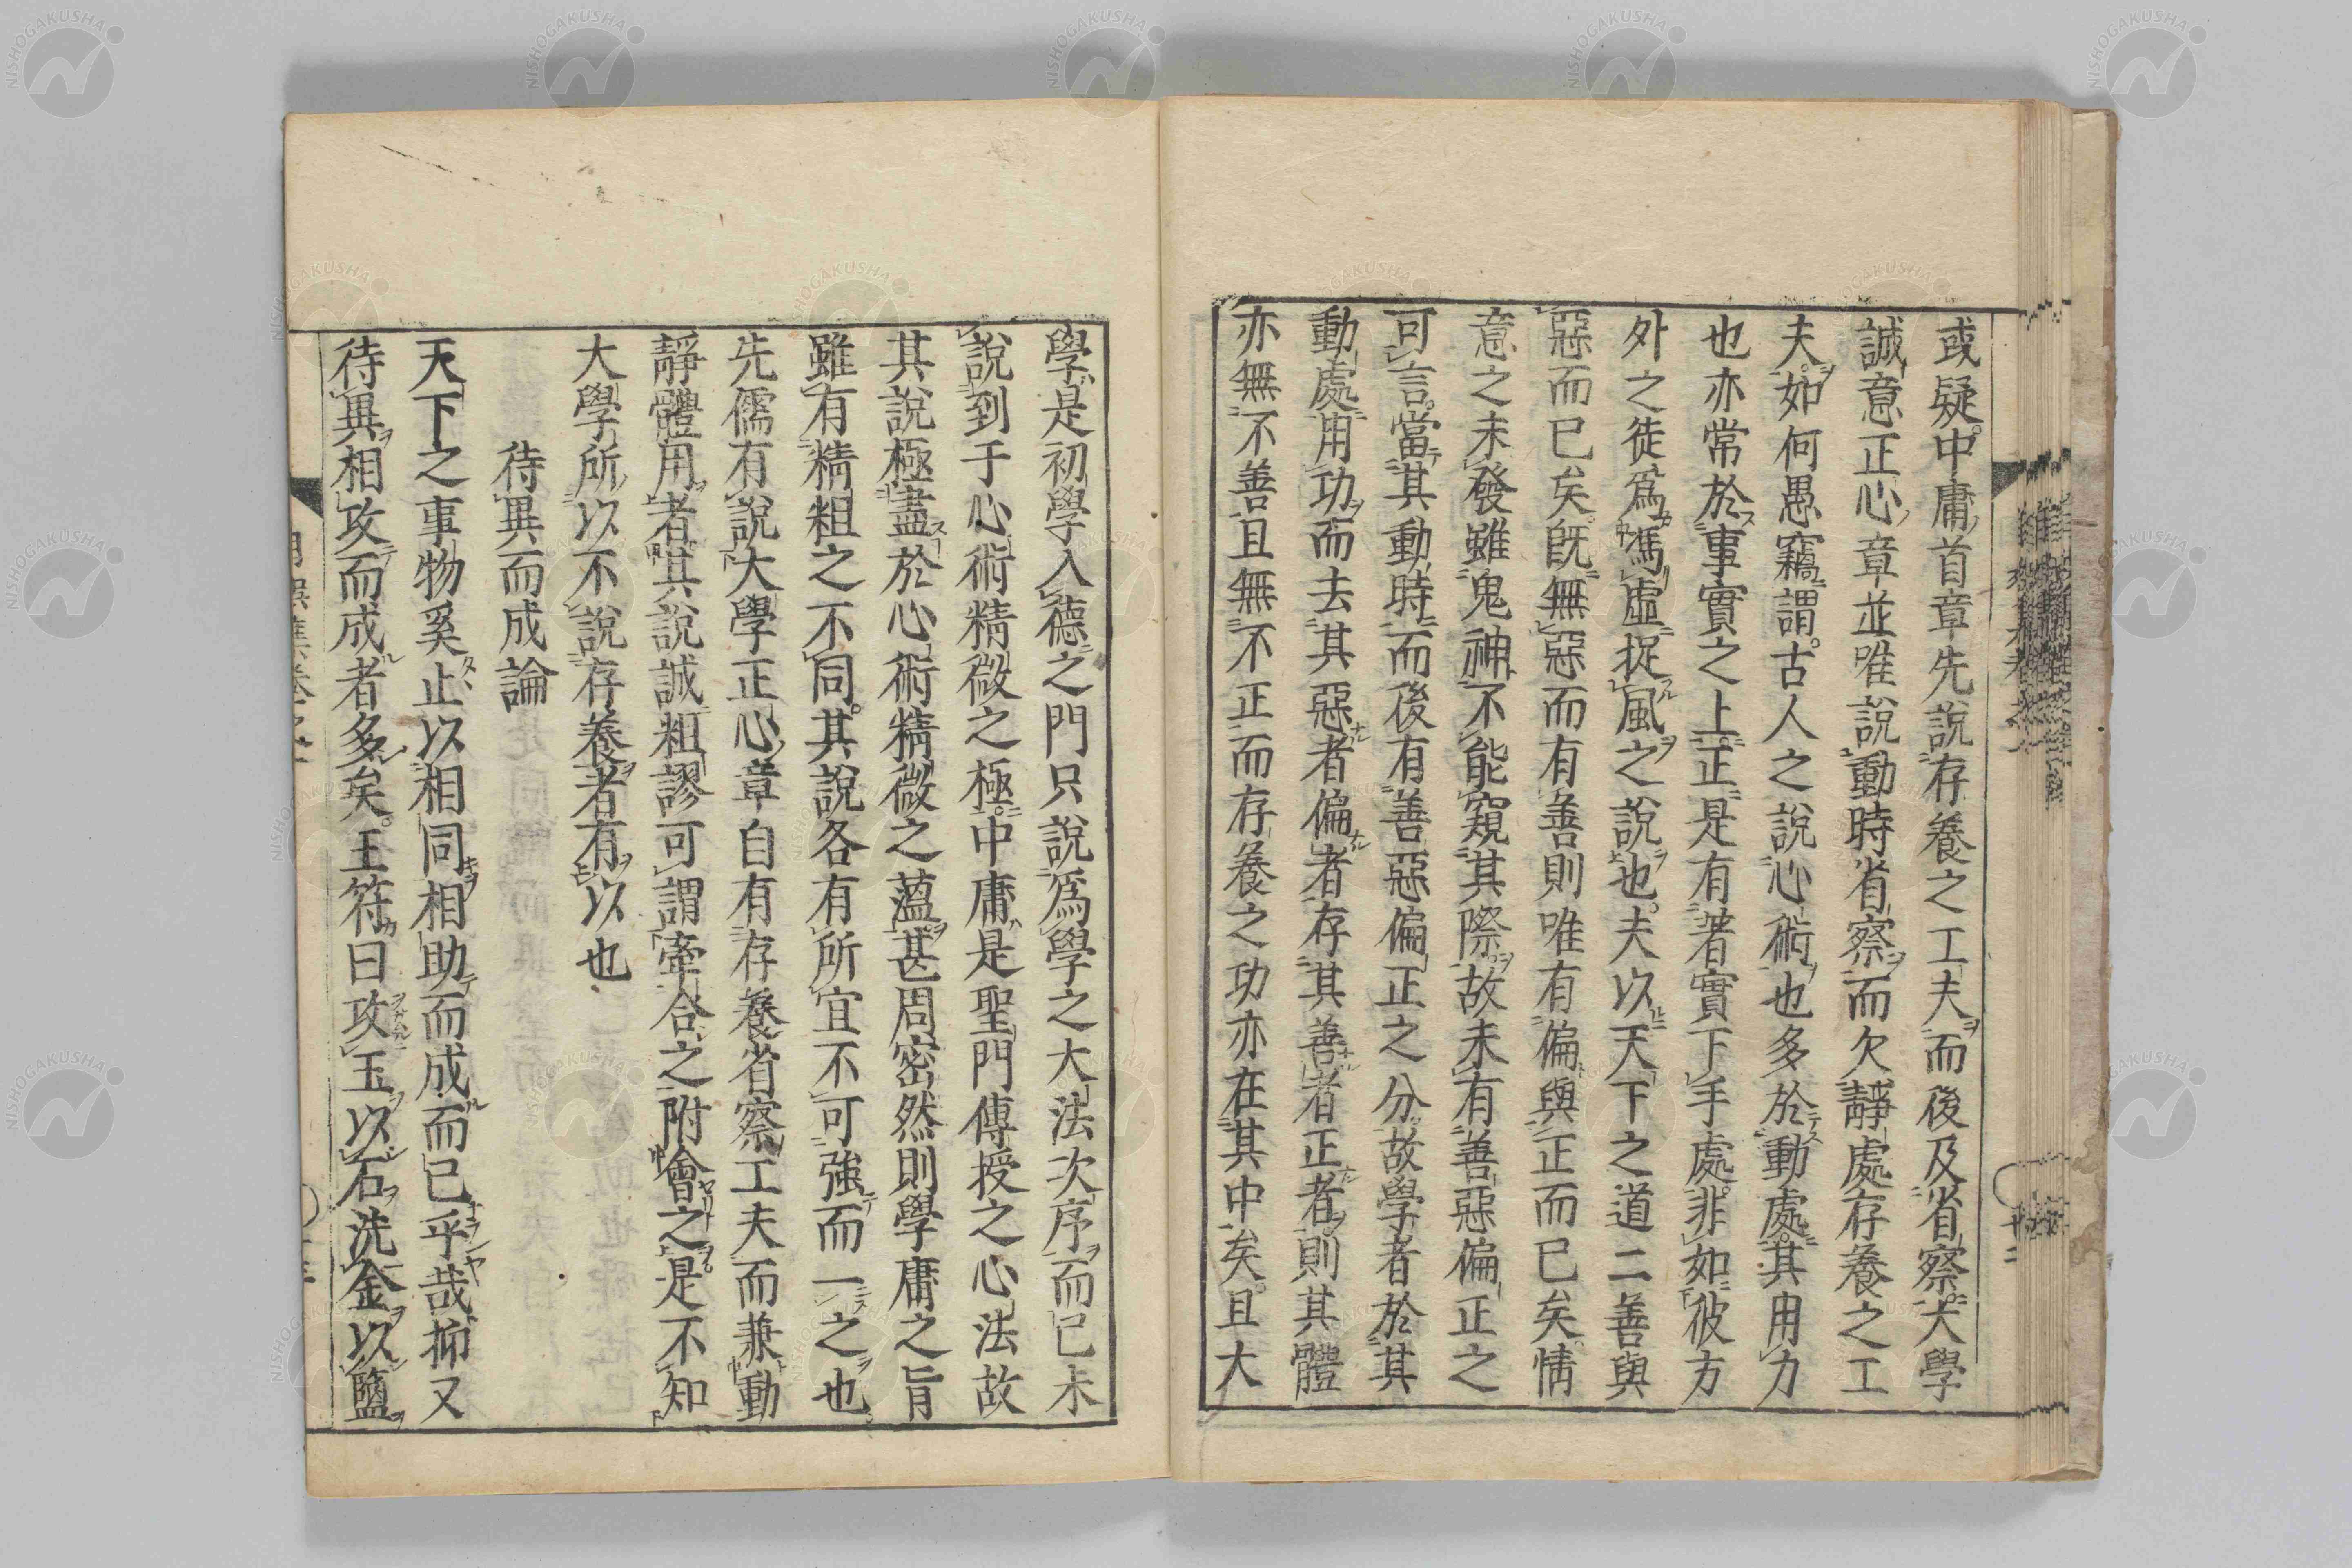 或疑中庸首章先說存養之工夫而後及省察大學
誠意正心章並唯說動時省察而欠靜處存養之工
夫如何愚竊謂古人之說心術也多於動處其用力
也亦常於事實之上正是有著實下手處非如彼方
外之徒爲馮虛捉風之說也夫以天下之道二善與
惡而已矣旣無惡而有善則唯有偏與正而已矣情
意之未發雖鬼神不能窺其際故未有善惡偏正之
可言當其動時而後有善惡偏正之分故學者於其
動處用功而去其惡者偏者存其善者正者則其體
亦無不善且無不正而存養之功亦在其中矣且大
學是初學入德之門只說爲學之大法次序而已未
說到于心術精微之極中庸是聖門傳授之心法故
其說極盡於心術精微之蘊甚周密然則學庸之旨
雖有精粗之不同其說各有所宜不可強而一之也
先儒有說大學正心章自有存養省察工夫而兼動
靜體用者其說誠粗謬可謂牽合之附會之是不知
大學所以不說存養者有以也
待異而成論
天下之事物奚止以相同相助而成而已乎哉抑又
待異相攻而成者多矣王符曰攻玉以石洗金以鹽
NISHOGAKUSHA